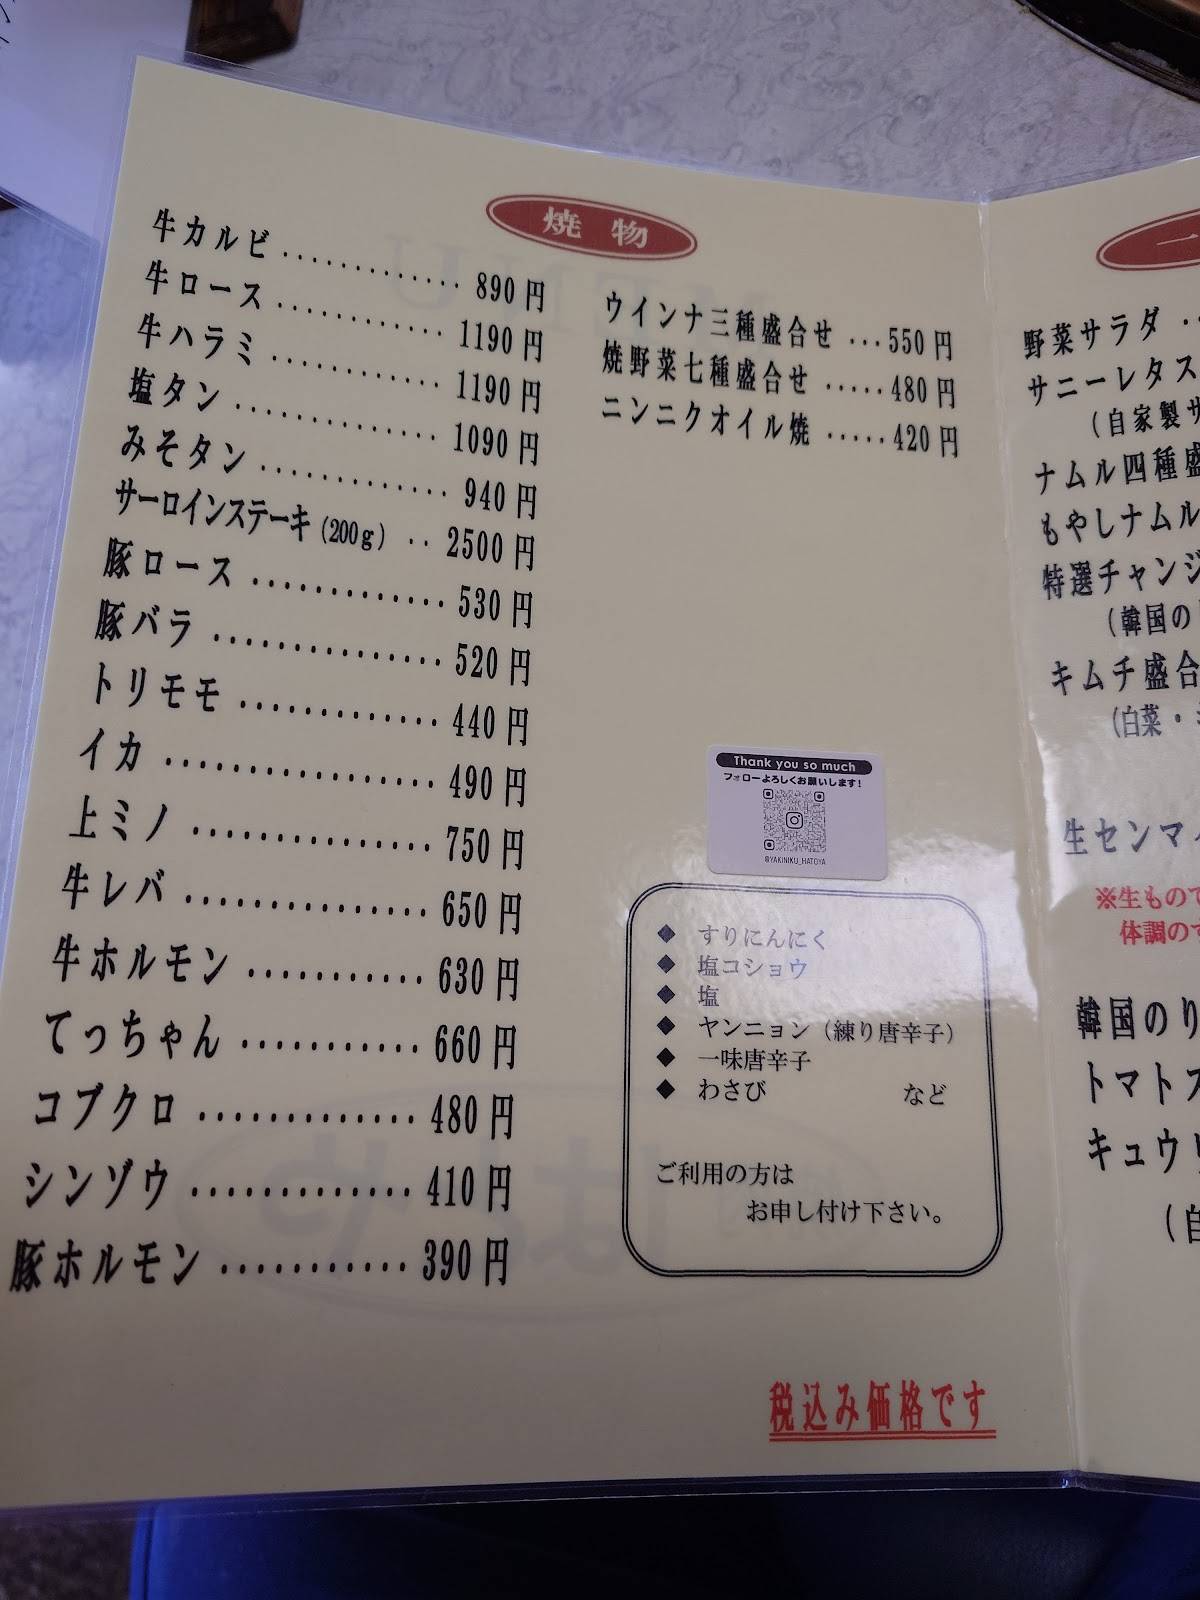 焼物
牛カルビ ............ 890円
牛ロース ............ 1190円
牛ハラミ ............ 1190円
塩タン .............. 1090円
みそタン ............. 940円
サーロインステーキ(200g) .. 2500円
豚ロース ............. 530円
豚バラ ............... 520円
トリモモ ............. 440円
イカ ................. 490円
上ミノ ............... 750円
牛レバ ............... 650円
牛ホルモン ........... 630円
てっちゃん ........... 660円
コブクロ ............. 480円
シンゾウ ............. 410円
豚ホルモン ........... 390円
ウインナ三種盛合せ ...550円
焼野菜七種盛合せ .....480円
ニンニクオイル焼 .....420円
Thank you so much
フォローよろしくお願いします!
@YAKINIKU_HATOYA
◆ すりにんにく
◆ 塩コショウ
◆ 塩
◆ ヤンニョン（練り唐辛子）
◆ 一味唐辛子
◆ わさび など
ご利用の方は
お申し付け下さい。
税込み価格です
一
野菜サラダ ..
サニーレタス
(自家製サ
ナムル四種盛
もやしナムル
特選チャンジ
(韓国の
キムチ盛合
(白菜・
生センマイ
※生もので
体調のす
韓国のり
トマトス
キュウリ